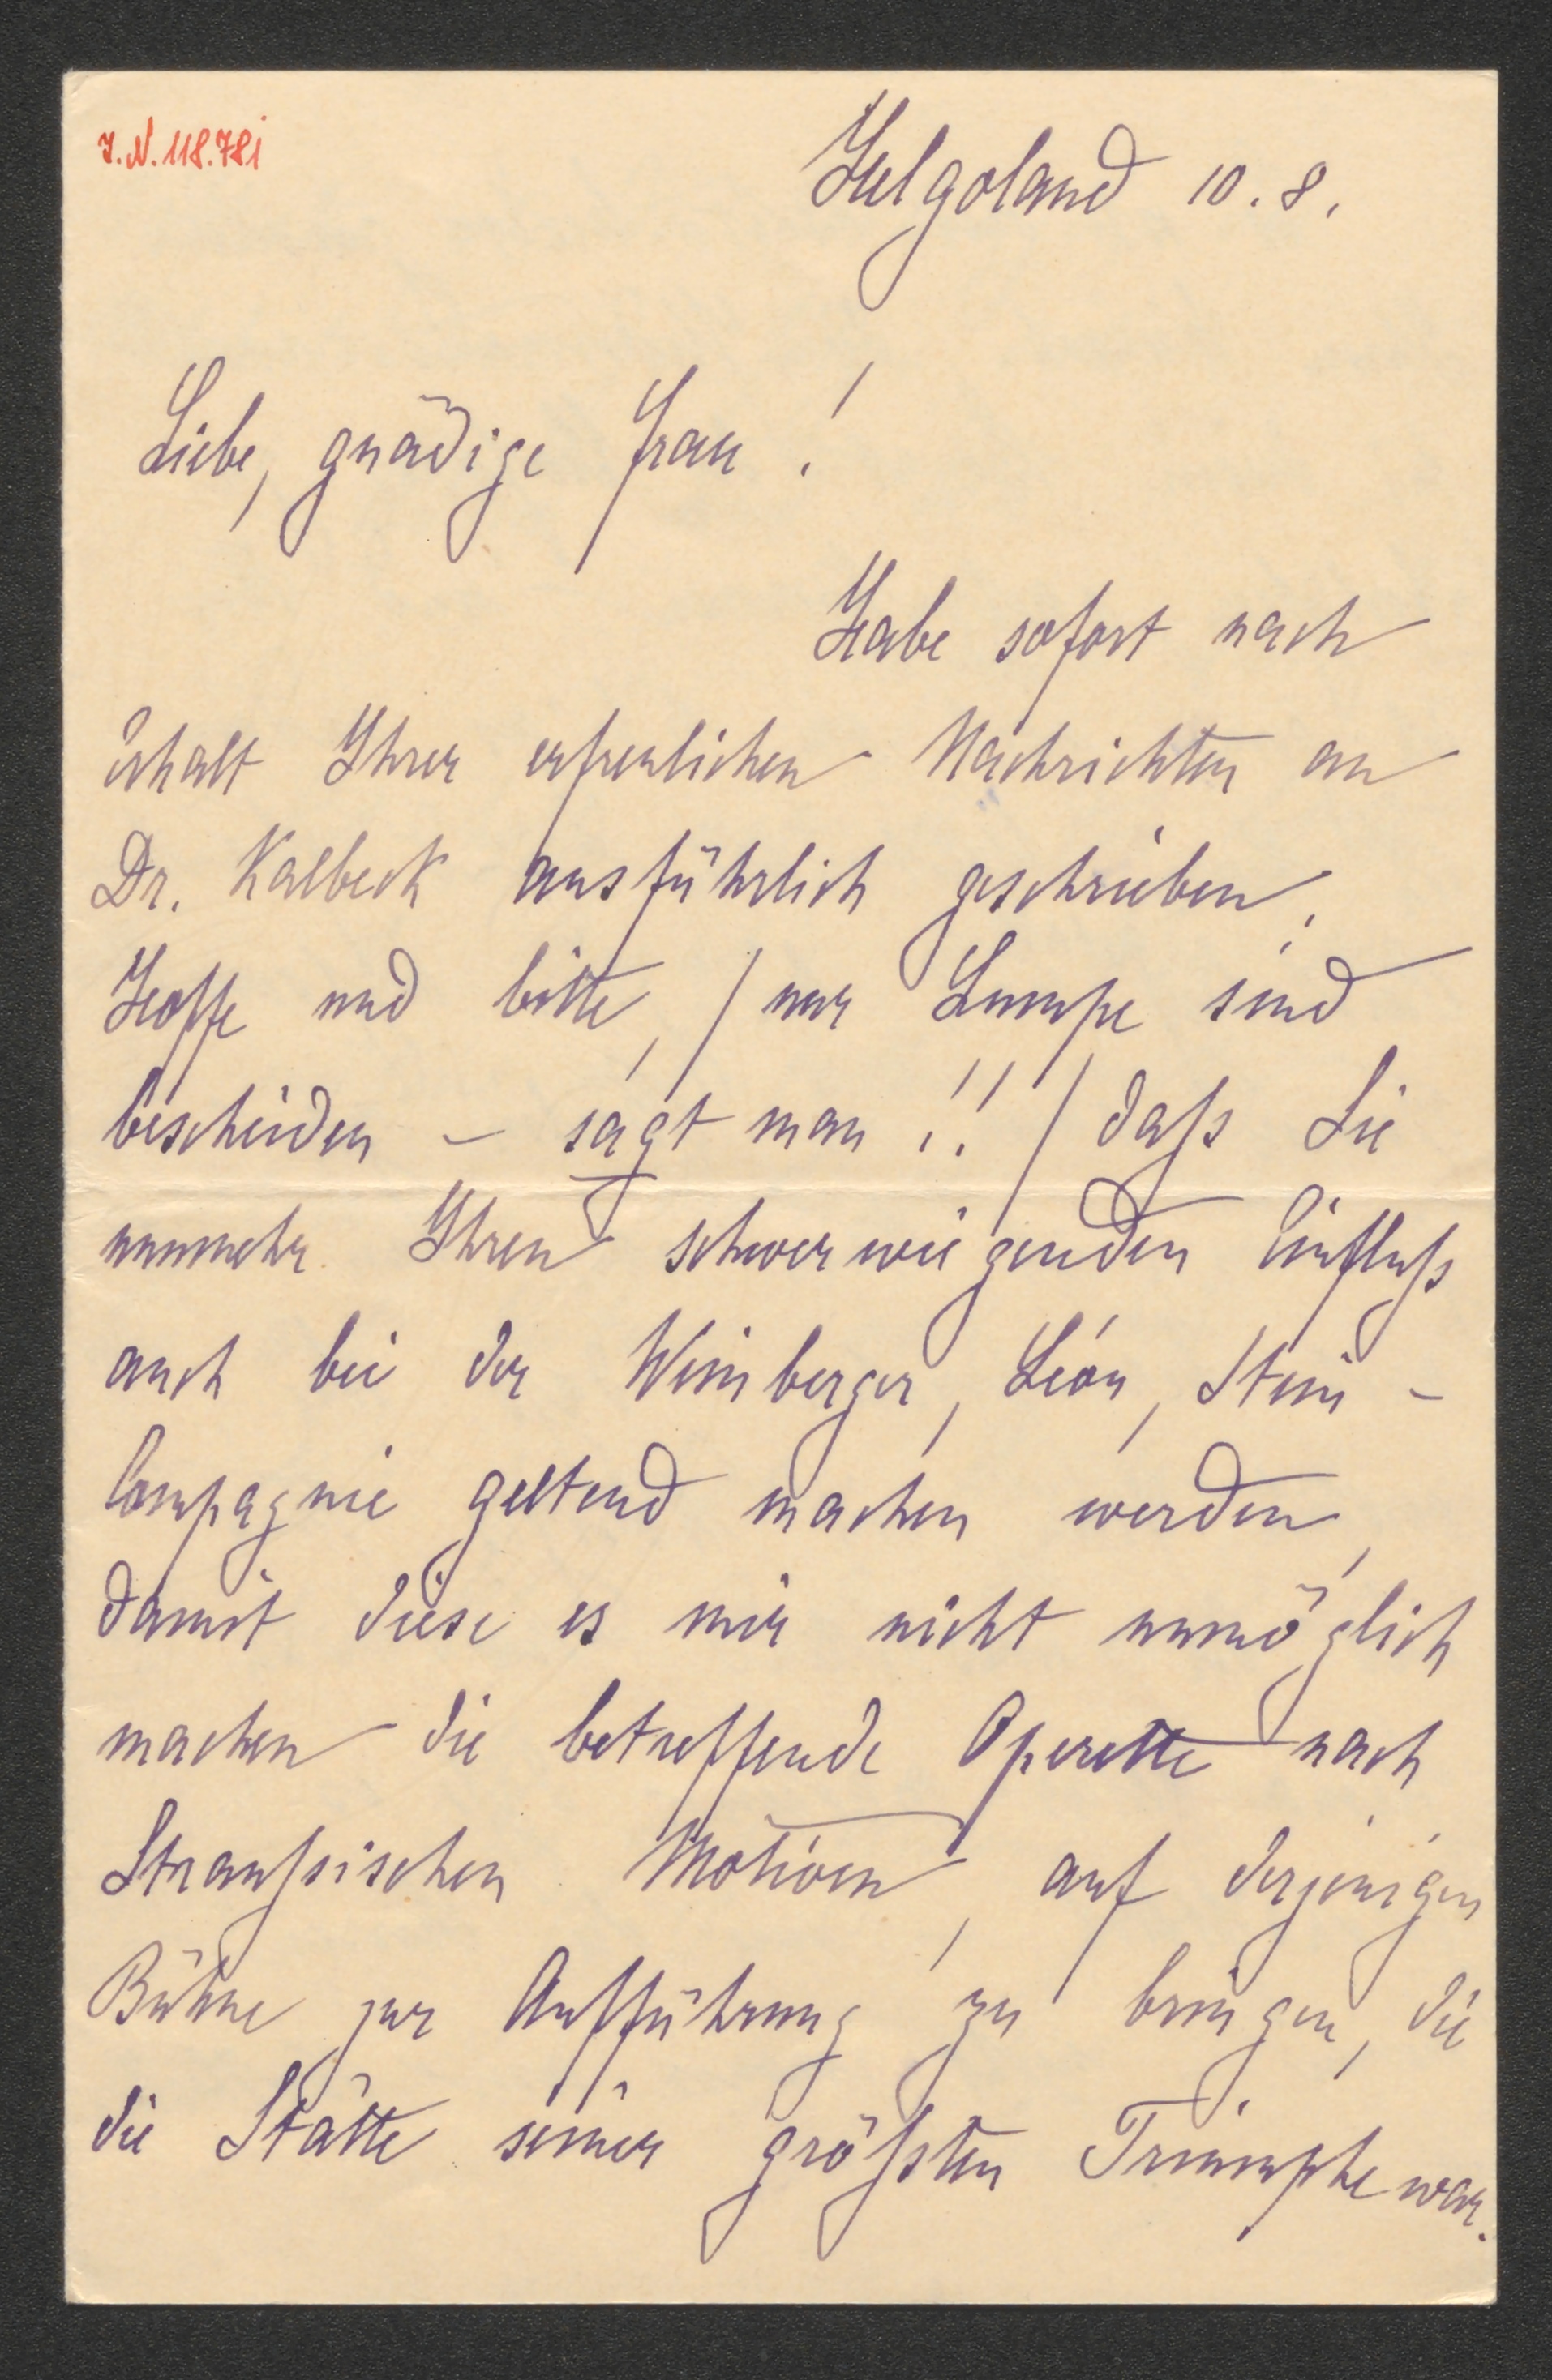 J.N. 118.781
Helgoland 10.8.
Liebe, gnädige Frau!
Habe sofort nach
Erhalt Ihrer erfreulichen Nachrichten an
Dr. Kalbeck ausführlich geschrieben.
Hoffe und bitte, / nur Lumpe sind
bescheiden – sagt man!! / daß Sie
nunmehr Ihren schwerwiegenden Einfluß
auch bei der Weinberger, Léon, Stein –
Compagnie geltend machen werden,
damit diese es mir nicht unmöglich
machen die betreffende Operette nach
Straußsischen Motiven, auf derjenigen
Bühne zur Aufführung zu bringen, die
die Stätte seiner größten Triumphe war.